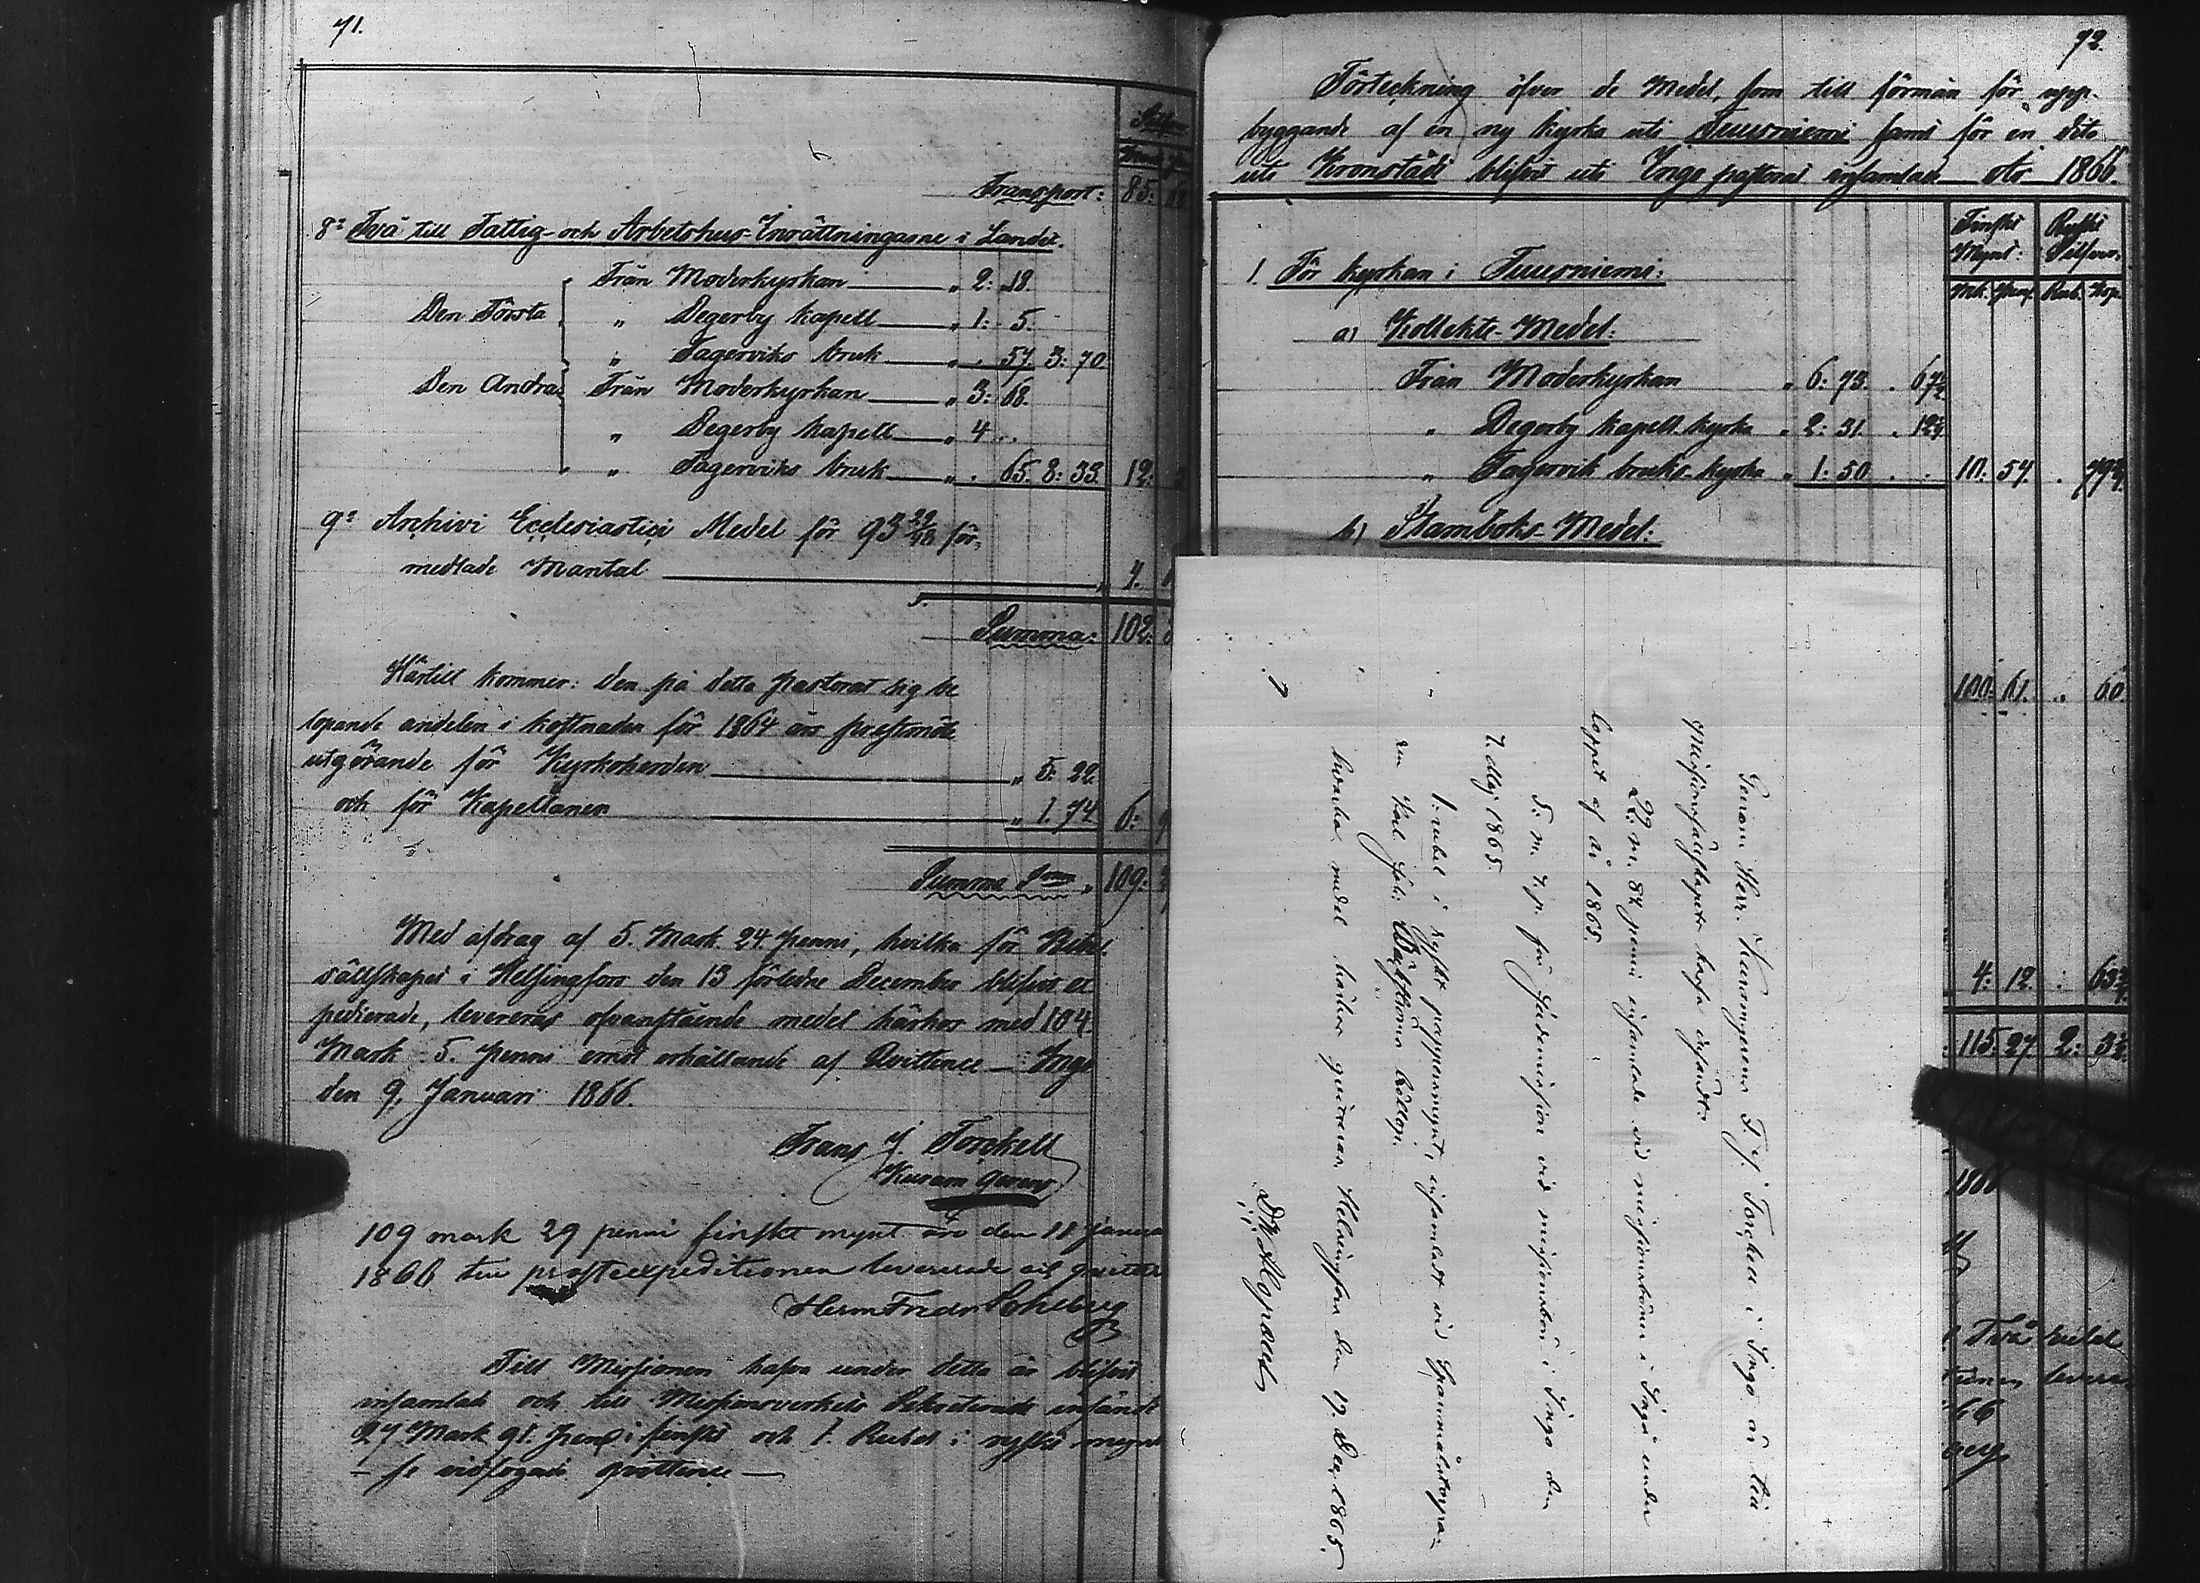 71.
Silfver
Transport: 85:
8:o Två till Fattig- och Arbetshus-Inrättningarne i Landet.
Den Första Från Moderkyrkan " 2: 18.
" Degerby kapell " 1: 5.
" Fagerviks bruk " . 57. 3: 70
Den Andra Från Moderkyrkan " 3: 68.
" Degerby kapell " 4 . .
" Fagerviks bruk " . 65. 8: 33. 12:
9:o Archivi Ecclesiastici Medel för 93 29/48 för-
medlade Mantal " 7.
Summa: 102:
Härtill kommer: den på detta pastorat sig be
löpande andelen i kostnaden för 1864 års prestmöte
utgörande för Kyrkoherden " 5: 22.
och för Kapellanen " 1. 74. 6:
Summa S:rum " 109:
Med afdrag af 5. Mark. 24. penni, hvilka för Bibel
sällskapet i Helsingfors den 13 förledne December blifvit ex
pedierade, levereras ofvanstående medel härhos med 104.
Mark 5. penni emot erhållande af Qvittence — Ingo
den 9. Januari 1866.
Frans J. Torckell
109 mark 29 penni finskt mynt äro den 18 janua
1866 till postexpeditionen levererade
Herm Fredr Sohlberg
Till Missionen hafva under detta år blifvit
insamlade och till Missionsverkets Sekreterade insändt
27 Mark 91. penni i finskt och 1. Rubel i ryskt mynt
— se vidfogade qvittence —
72.
Förteckning öfver de Medel, som till förmån för upp-
byggande af en ny kyrka uti Tuusniemi samt för en dito
uti Kronstadt blifvit uti Ingo pastorat insamlade år 1866.
Finskt Mynt: Ryskt Silfver:
Mk. pen. Rub. Kop.
1. För kyrkan i Tuusniemi:
a) Kollekte-Medel:
Från Moderkyrkan " 6: 73. . 67 1/2
" Degerby kapell-kyrka " 2: 31. . 12
" Fagervik bruks-kyrka " 1: 50 . . 10: 54. . 79
b) Stamboks-Medel:
100: 61. . 60.
4: 12. . 63
115: 27 2: 3
1866
Två rubel
levere
66
berg
Genom Herr Kuramgerens F. J. Torckell i Ingo är till
missionssällskapets kassa insändt:
22. m. 84 penni insamlade vid missionsböner i Ingå under
loppet af år 1865.
5. m. 7. p. för Hednamission vid missionsbön i Ingo den
7. Maj 1865.
1. rubel i ryskt pappersmynt, insamladt vid
hvarka medel härhos qvitteras, Helsingfors den 17. Dec. 1865.